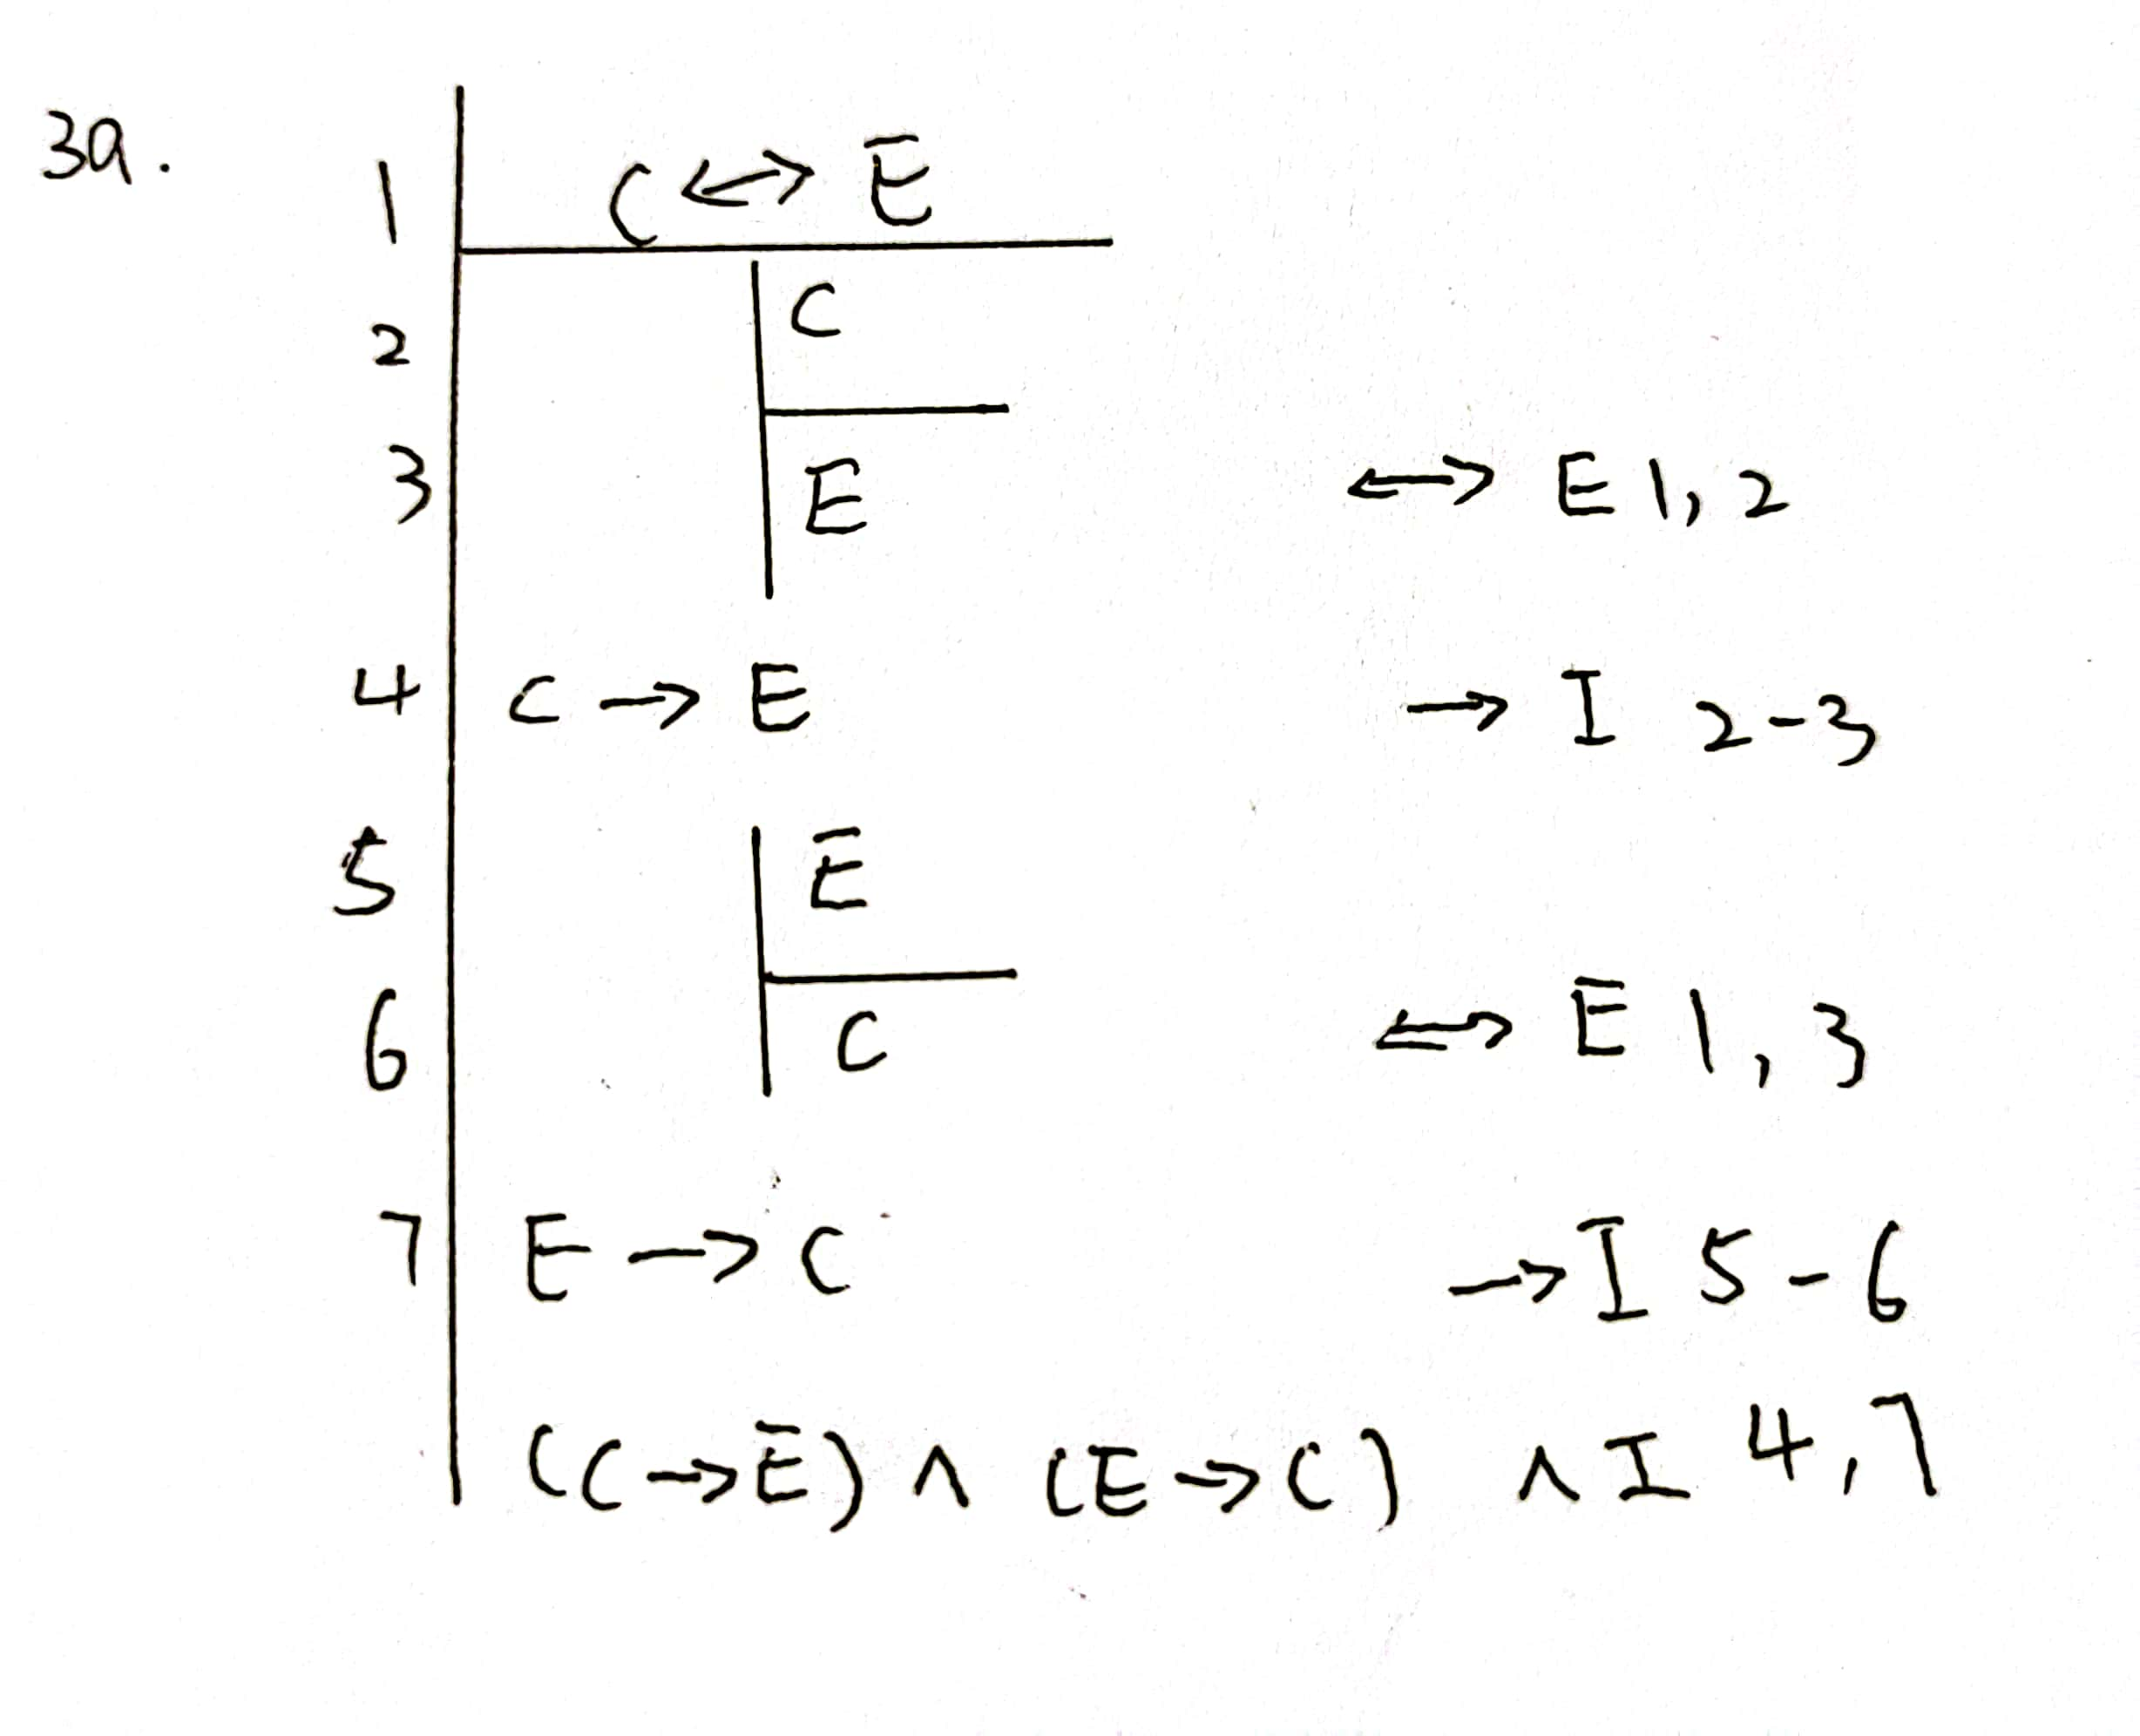 3a.
1 C ↔ E
2 C
3 E ↔ E 1, 2
4 C → E → I 2-3
5 E
6 C ↔ E 1, 3
7 E → C → I 5-6
(C→E) ∧ (E→C) ∧ I 4, 7